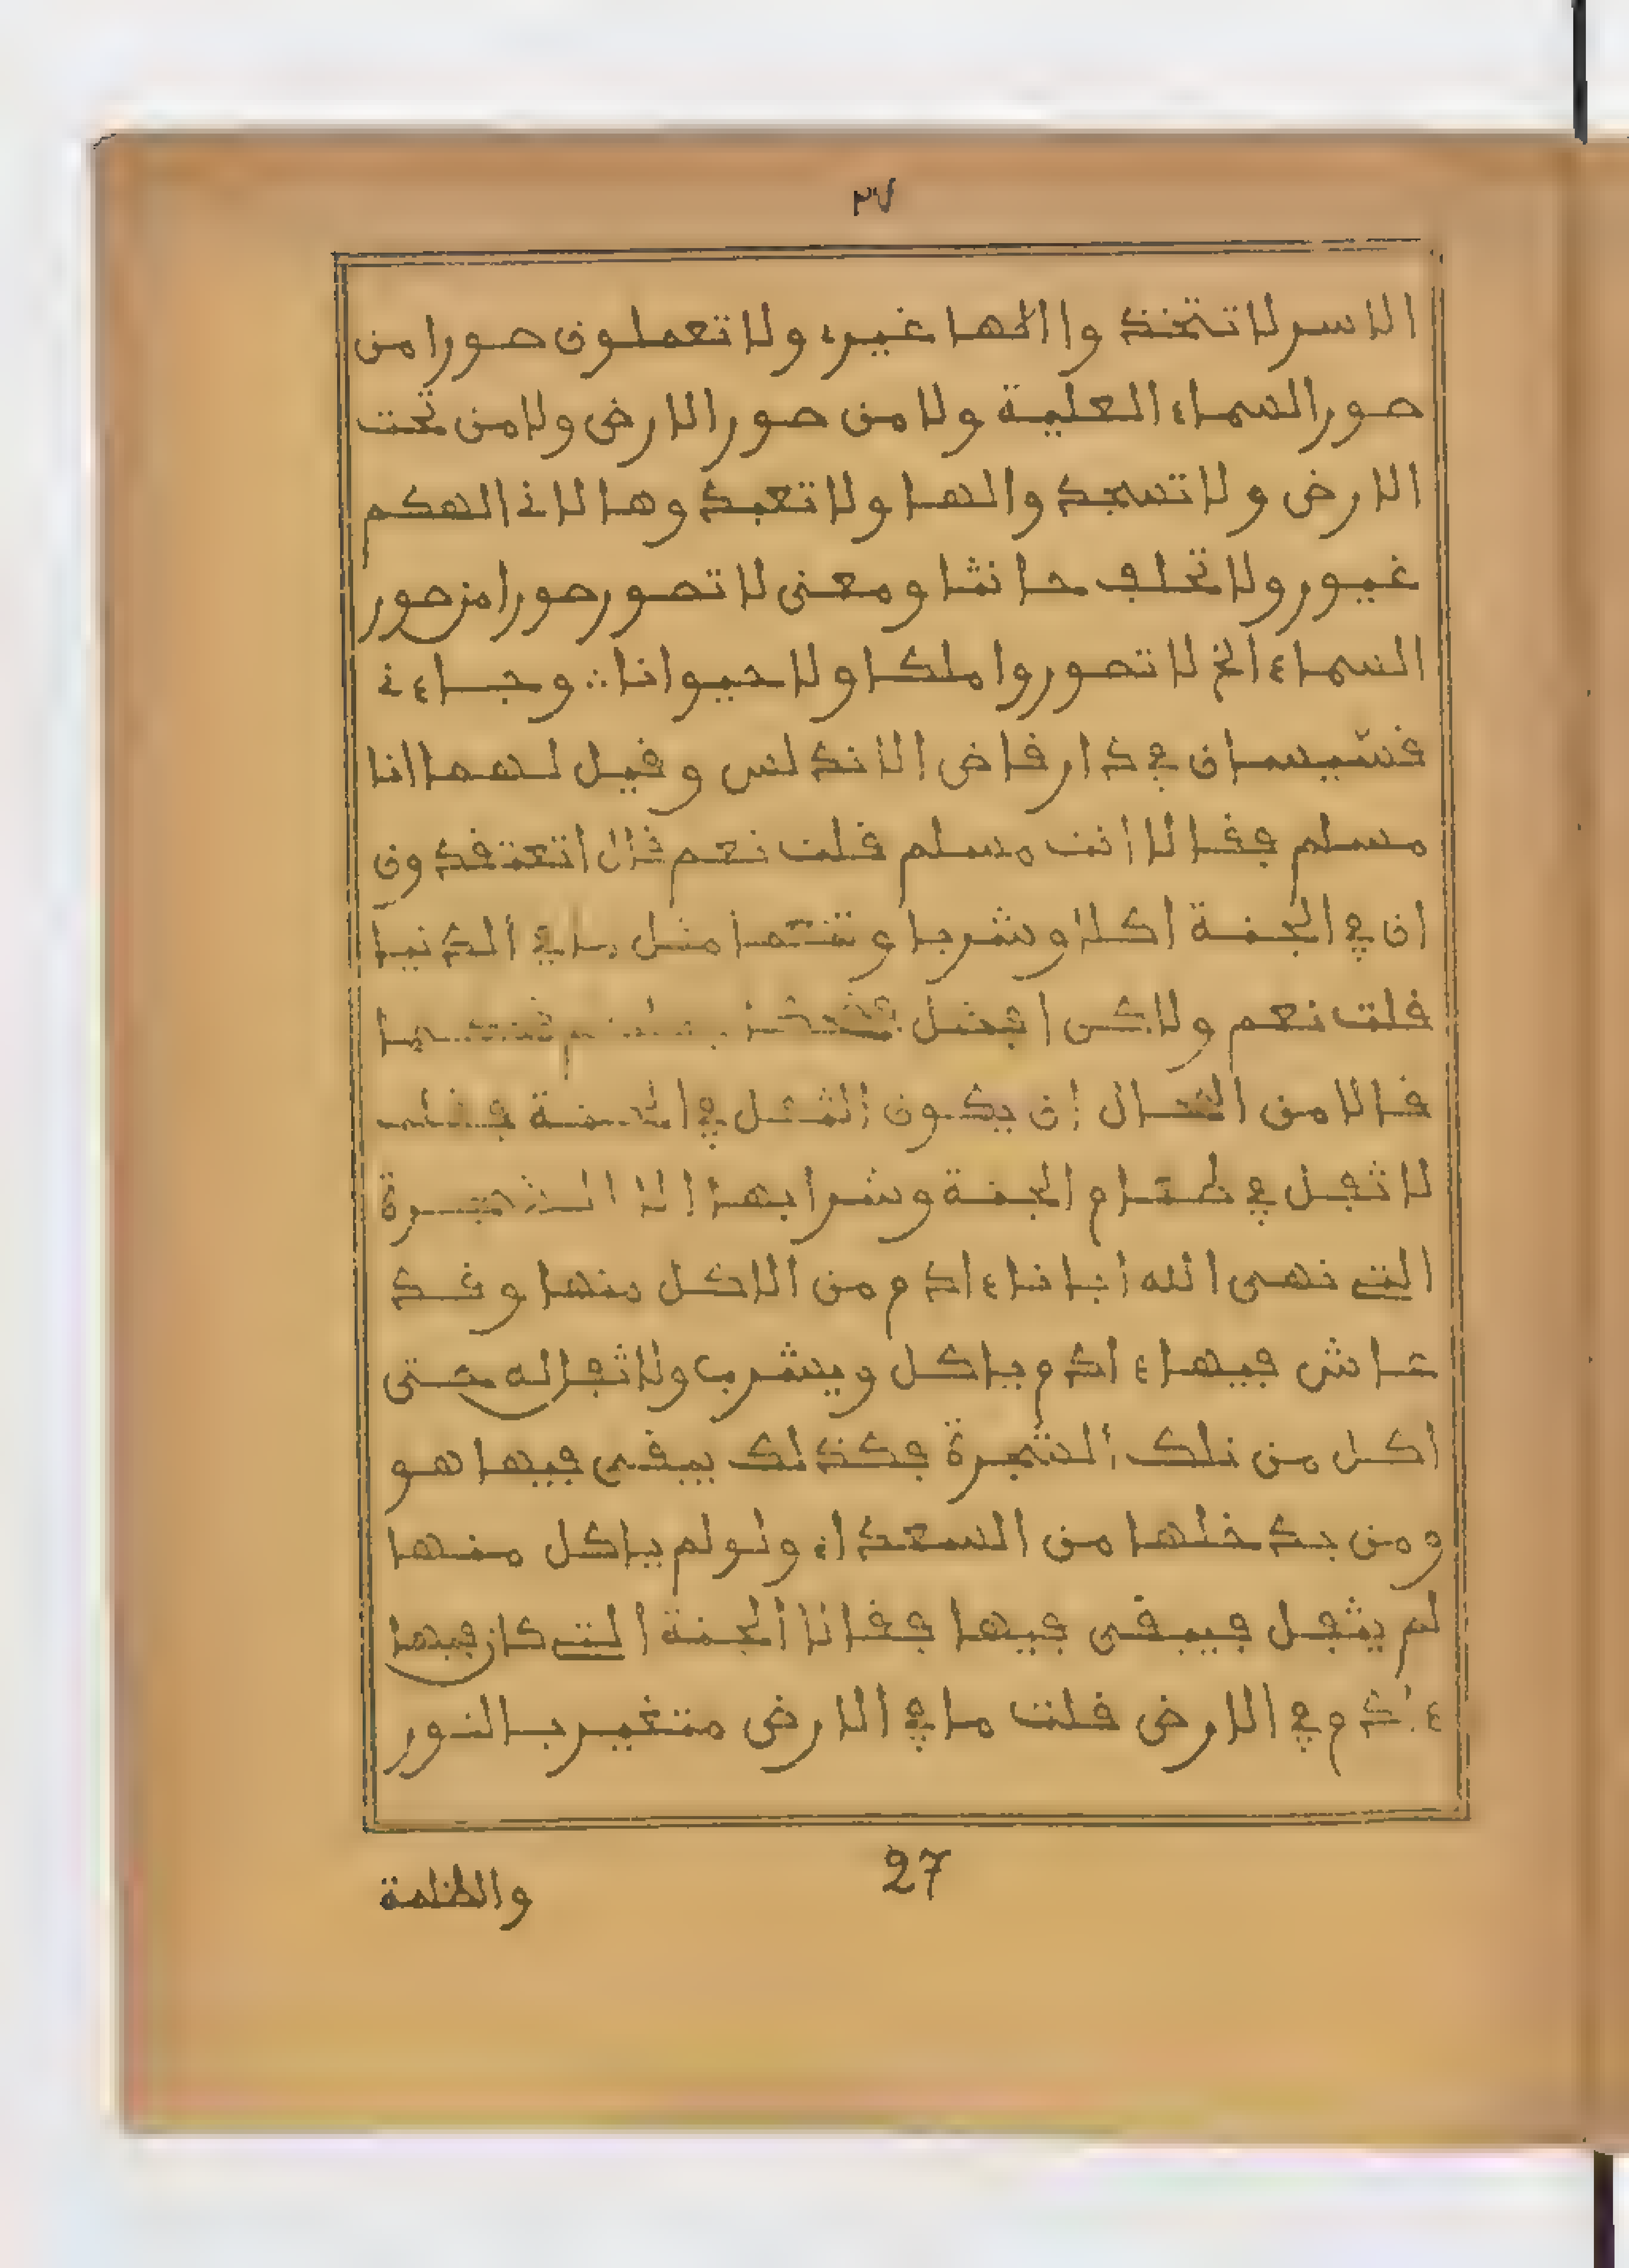 ٢٧
الاسر لا تتخذوا الها غيره ولا تعملون صورا من
صور السماء العلية ولا من صور الارض ولا من تحت
الارض ولا تسجدوا لها ولا تعبدوها لانى الهكم
غيور ولا تحلف حانثا ومعنى لا تصور صورا من صور
السماء الخ لا تصوروا ملكا ولا حيوانا ∴ وجاءنى
قسيسان في دار قاض الاندلس وقيل لهما انا
مسلم فقالا انت مسلم قلت نعم قال اتعتقدون
ان في الجنة اكلا وشربا و مثل ما في الدنيا
قلت نعم ولاكن
قالا من المحال ان يكون الثفل في الجنة فقلت
لا ثفل في طعام الجنة وشرابها الا الشجرة
التى نهى الله ابانا ءادم من الاكل منها وقد
عاش فيها ءادم ياكل ويشرب ولا ثفل له حتى
اكل من تلك الشجرة فكذلك يبقى فيها هو
ومن يدخلها من السعداء ولو لم ياكل منها
لم يثفل فيبقى فيها فقالا الجنة التى كان فيها
ءادم في الارض قلت ما في الارض متغير بالنور
27
والظلمة